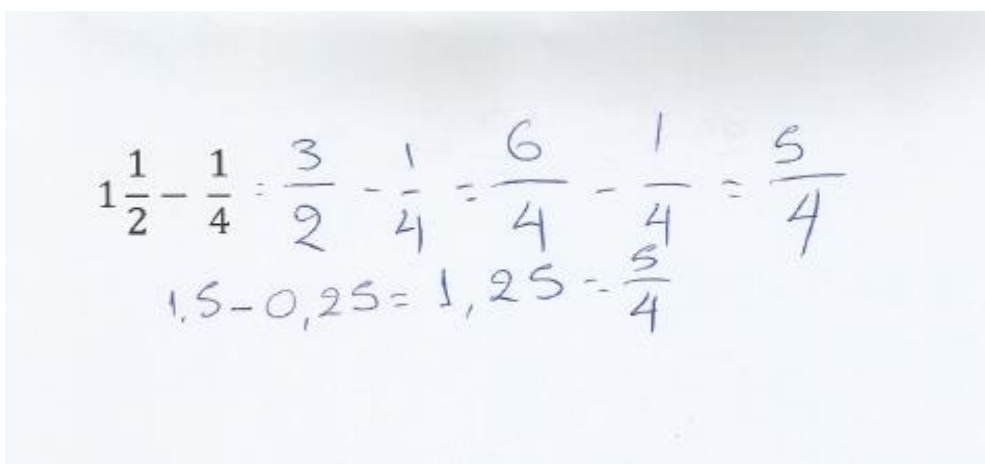 1 1/2 − 1/4 = 3/2 - 1/4 = 6/4 - 1/4 = 5/4
1,5 - 0,25 = 1,25 = 5/4